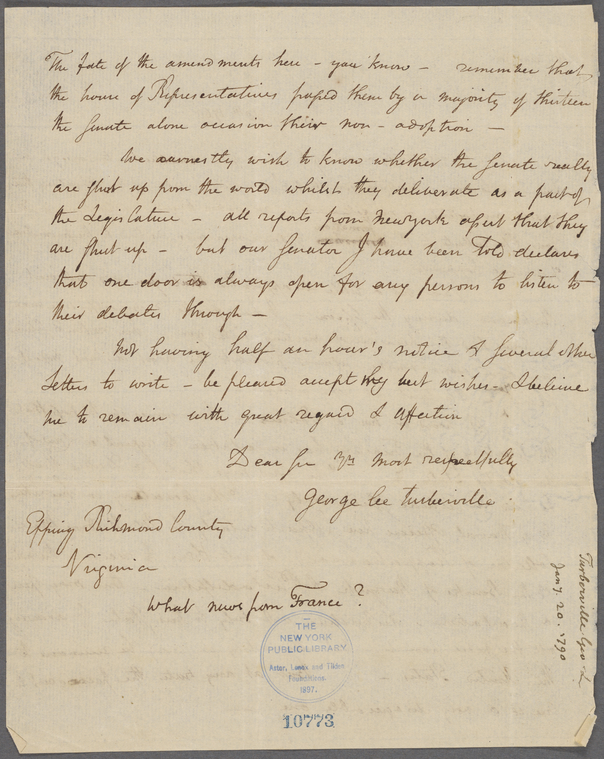 The fate of the amendments here - you know - remember that
the house of Representatives passed them by a majority of thirteen
the Senate alone occasion their non-adoption -
We earnestly wish to know whether the Senate really
are shut up from the world whilst they deliberate as a part of
the Legislature - all reports from Newyork assert that they
are shut up - but our Senator I have been told declares
that one door is always open for any persons to listen to
their debates through -
Not having half an hour's notice & several other
Letters to write - be pleased accept my best wishes - & believe
me to remain with great regard & affection
Dear Sir Yrs most respectfully
George Lee Turberville.
Epping Richmond County
Virginia
What news from France?
THE
NEW YORK
PUBLIC LIBRARY
Astor, Lenox and Tilden
Foundations
1897.
10773
Turberville Geo. L
Jany. 20. 1790